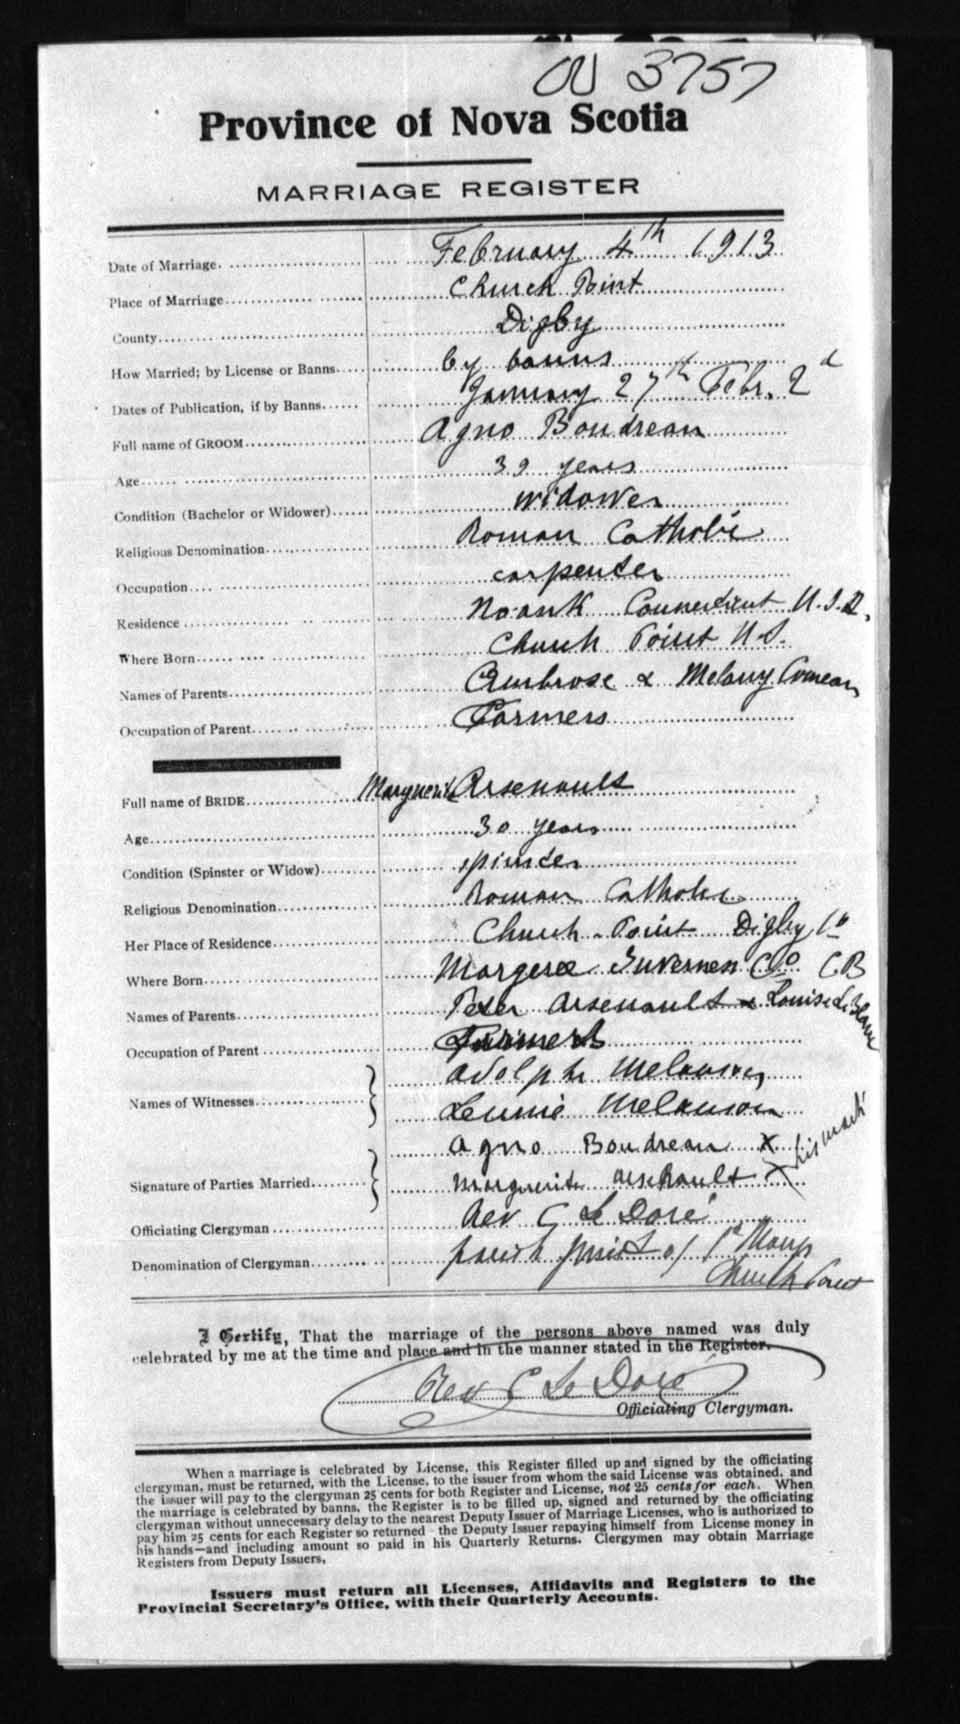 3757
Province of Nova Scotia
MARRIAGE REGISTER
Date of Marriage. February 4th 1913
Place of Marriage Church Point
County Digby
How Married; by License or Banns by banns
Dates of Publication, if by Banns January 27th Febr. 2d
Full name of GROOM Agno Boudreau
Age 39 years
Condition (Bachelor or Widower) widower
Religious Denomination Roman Catholic
Occupation carpenter
Residence Noank Connecticut U.S.A.
Where Born Church Point N.S.
Names of Parents Ambrose & Melany Comeau
Occupation of Parent Farmers
Full name of BRIDE Marguerite Arsenault
Age 30 years
Condition (Spinster or Widow) spinster
Religious Denomination Roman Catholic
Her Place of Residence Church Point Digby Co
Where Born Margeree Inverness Co CB
Names of Parents Peter Arsenault & Louise LeBlanc
Occupation of Parent Farmers
Names of Witnesses Adolphe Melanson
Melanson
Agno Boudreau X
Signature of Parties Married Marguerite Arsenault X his mark
Officiating Clergyman Rev C Le Doré
Denomination of Clergyman parish priest of
Church Point
I Certify, That the marriage of the persons above named was duly
celebrated by me at the time and place and in the manner stated in the Register.
Rev C Le Doré
Officiating Clergyman.
When a marriage is celebrated by License, this Register filled up and signed by the officiating
clergyman, must be returned, with the License, to the issuer from whom the said License was obtained, and
the issuer will pay to the clergyman 25 cents for both Register and License, not 25 cents for each. When
the marriage is celebrated by banns, the Register is to be filled up, signed and returned by the officiating
clergyman without unnecessary delay to the nearest Deputy Issuer of Marriage Licenses, who is authorized to
pay him 25 cents for each Register so returned—the Deputy Issuer repaying himself from License money in
his hands—and including amount so paid in his Quarterly Returns. Clergymen may obtain Marriage
Registers from Deputy Issuers.
Issuers must return all Licenses, Affidavits and Registers to the
Provincial Secretary's Office, with their Quarterly Accounts.